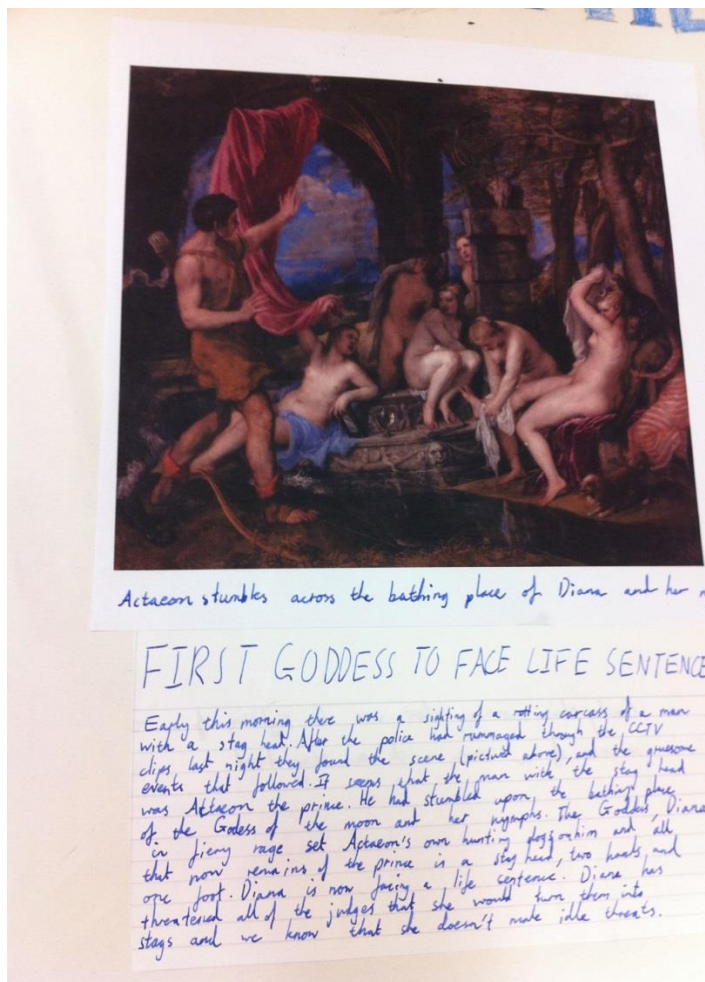 Actaeon stumbles across the bathing place of Diana and her
FIRST GODDESS TO FACE LIFE SENTENCE
Early this morning there was a sighting of a rotting carcass of a man
with a stag heat. After the police had rummaged through the CCTV
clips last night they found the scene (pictured above), and the gruesome
events that followed. It seems that the man with the stag head
was Actaeon the prince. He had stumbled upon the bathing place
of the Godess of the moon and her nymphs. The Goddess, Diana
in fiery rage set Actaeon's own hunting dogs on him and all
that now remains of the prince is a stag head, two hands and
one foot. Diana is now facing a life sentence. Diana has
threatened all of the judges that she would turn them into
stags and we know that she doesn't make idle threats.